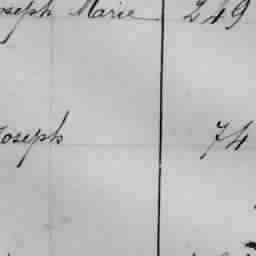 Joseph Marie 249
Joseph 74